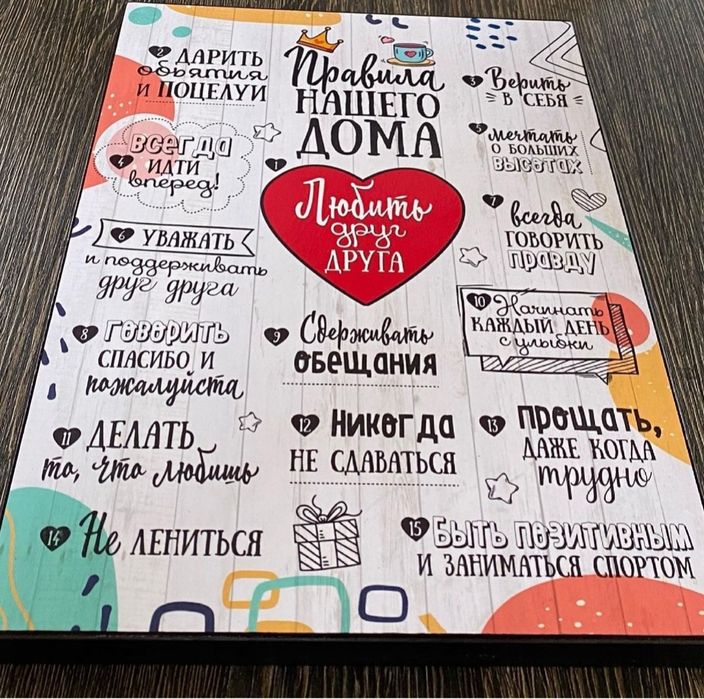 Правила
НАШЕГО
ДОМА
1
Любить
друг
ДРУГА
2 ДАРИТЬ
объятия
И ПОЦЕЛУИ
3 Верить
В СЕБЯ
всегда
4 ИДТИ
вперед!
5 мечтать
О БОЛЬШИХ
ВЫСОТАХ
6 УВАЖАТЬ
и поддерживать
друг друга
7 всегда
ГОВОРИТЬ
ПРАВДУ
8 ГОВОРИТЬ
СПАСИБО И
пожалуйста
9 Сдерживать
ОБЕЩАНИЯ
10 Начинать
КАЖДЫЙ ДЕНЬ
с улыбки
11 ДЕЛАТЬ
то, что любишь
12 НИКОГДА
НЕ СДАВАТЬСЯ
13 ПРОЩАТЬ,
ДАЖЕ КОГДА
трудно
14 Не ЛЕНИТЬСЯ
15 БЫТЬ ПОЗИТИВНЫМ
И ЗАНИМАТЬСЯ СПОРТОМ